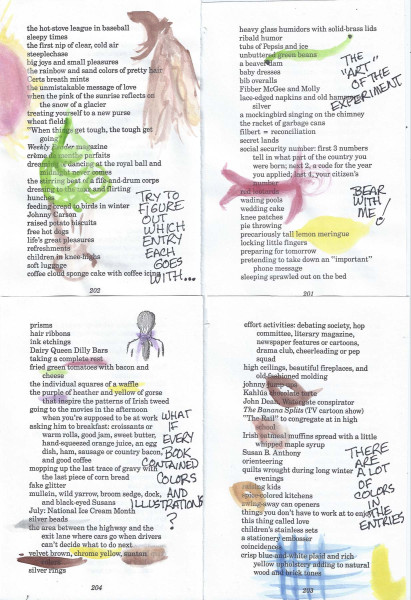 the hot-stove league in baseball
sleepy times
the first nip of clear, cold air
steeplechase
big joys and small pleasures
the rainbow and sand colors of pretty hair
Certs breath mints
the unmistakable message of love
when the pink of the sunrise reflects on
the snow of a glacier
treating yourself to a new purse
wheat fields
"When things get tough, the tough get
going"
Weekly Reader magazine
crème de menthe parfaits
dreaming of dancing at the royal ball and
midnight never comes
the stirring beat of a fife-and-drum corps
dressing to the nines and flirting
hunches
feeding bread to birds in winter
Johnny Carson
raised potato biscuits
free hot dogs
life's great pleasures
refreshments
children in knee-highs
soft luggage
coffee cloud sponge cake with coffee icing
202
TRY TO
FIGURE
OUT
WHICH
ENTRY
EACH
GOES
WITH...
heavy glass humidors with solid-brass lids
ribald humor
tubs of Pepsis and ice
unbuttered green beans
a beaver dam
baby dresses
bib overalls
Fibber McGee and Molly
lace-edged napkins and old hammered
silver
a mockingbird singing on the chimney
the racket of garbage cans
filbert = reconciliation
secret lands
social security number: first 3 numbers
tell in what part of the country you
were born; next 2, a code for the year
you applied; last 4, your citizen's
number
red leotards
wading pools
wedding cake
knee patches
pie throwing
precariously tall lemon meringue
locking little fingers
preparing for tomorrow
pretending to take down an "important"
phone message
sleeping sprawled out on the bed
201
THE
"ART"
OF THE
EXPERIMENT
BEAR
WITH
ME!
prisms
hair ribbons
ink etchings
Dairy Queen Dilly Bars
taking a complete rest
fried green tomatoes with bacon and
cheese
the individual squares of a waffle
the purple of heather and yellow of gorse
that inspire the patterns of Irish tweed
going to the movies in the afternoon
when you're supposed to be at work
asking him to breakfast: croissants or
warm rolls, good jam, sweet butter,
hand-squeezed orange juice, an egg
dish, ham, sausage or country bacon,
and good coffee
mopping up the last trace of gravy with
the last piece of corn bread
fake glitter
mullein, wild yarrow, broom sedge, dock,
and black-eyed Susans
July: National Ice Cream Month
silver beads
the area between the highway and the
exit lane where cars go when drivers
can't decide what to do next
velvet brown, chrome yellow, suntan
silver rings
204
WHAT
IF
EVERY
BOOK
CONTAINED
COLORS
AND
ILLUSTRATIONS
?
effort activities: debating society, hop
committee, literary magazine,
newspaper features or cartoons,
drama club, cheerleading or pep
squad
high ceilings, beautiful fireplaces, and
old-fashioned molding
johnny
Kahlúa chocolate torte
John Dean, Watergate conspirator
The Banana Splits (TV cartoon show)
"The Rail" to congregate at in high
school
Irish oatmeal muffins spread with a little
whipped maple syrup
Susan B. Anthony
orienteering
quilts wrought during long winter
evenings
raising kids
spice-colored kitchens
swing-away can openers
things you don't have to work at to enjoy
this thing called love
children's stainless sets
a stationery embosser
coincidence
crisp blue-and-white plaid and rich
yellow upholstery adding to natural
wood and brick tones
203
THERE
ARE
A LOT
OF
COLORS
IN
THE
ENTRIES